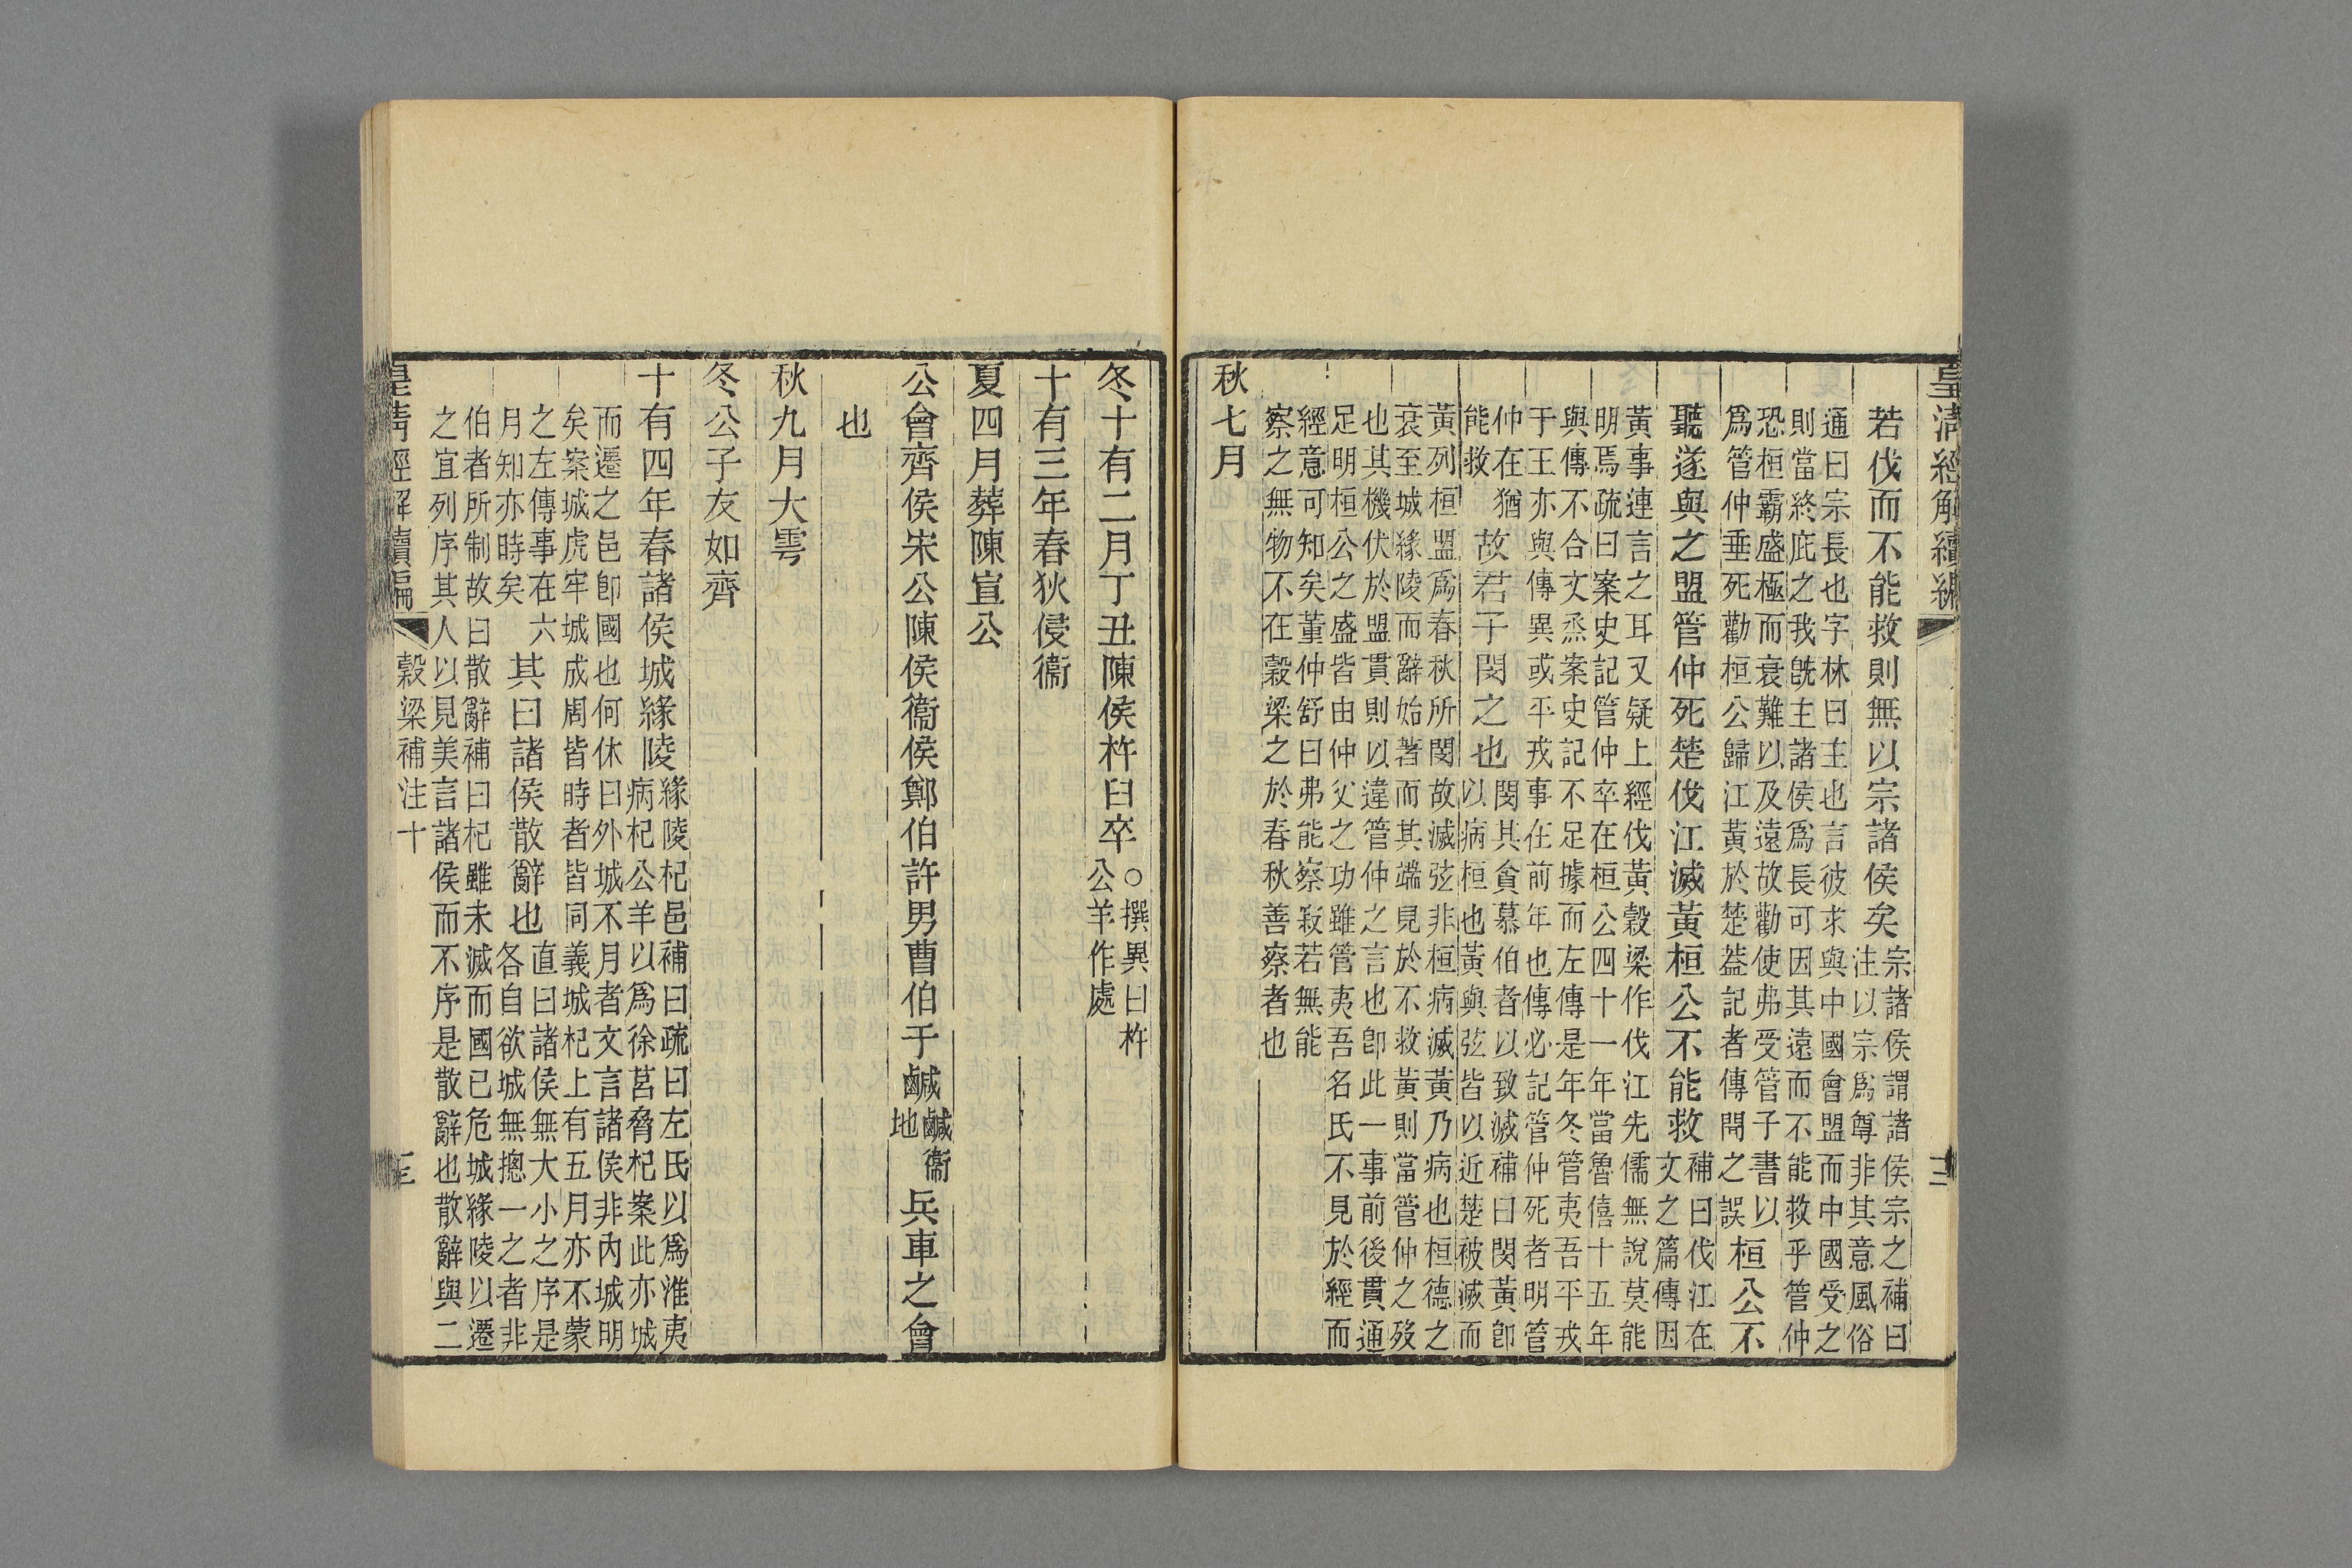 皇清經解續編
十二
若伐而不能救則無以宗諸侯矣宗諸侯謂諸侯宗之補曰
注以宗爲尊非其意風俗
通曰宗長也字林曰主也言彼求與中國會盟而中國受之
則當終庇之我旣主諸侯爲長可因其遠而不能救乎管仲
恐桓霸盛極而衰難以及遠故勸使弗受管子書以
爲管仲垂死勸桓公歸江黃於楚葢記者傳聞之誤桓公不
聽遂與之盟管仲死楚伐江滅黃桓公不能救補曰伐江在
文之篇傳因
黃事連言之耳又疑上經伐黃穀梁作伐江先儒無說莫能
明焉疏曰案史記管仲卒在桓公四十一年當魯僖十五年
與傳不合文烝案史記不足據而左傳是年冬管夷吾平戎
于王亦與傳異或平戎事在前年也傳必記管仲死者明管
仲在猶
能救故君子閔之也閔其貪慕伯者以致滅補曰閔黃卽
以病桓也黃與弦皆以近楚被滅而
黃列桓盟爲春秋所閔故滅弦非桓病滅黃乃病也桓德之
衰至城緣陵而辭始著而其端見於不救黃則當管仲之歿
也其機伏於盟貫則以違管仲之言也卽此一事前後貫通
足明桓公之盛皆由仲父之功雖管夷吾名氏不見於經而
經意可知矣董仲舒曰弗能察寂若無能
察之無物不在穀梁之於春秋善察者也
秋七月
冬十有二月丁丑陳侯杵臼卒○撰異曰杵
公羊作處
十有三年春狄侵衞
夏四月葬陳宣公
公會齊侯宋公陳侯衞侯鄭伯許男曹伯于鹹鹹衞
地兵車之會
也
秋九月大雩
冬公子友如齊
十有四年春諸侯城緣陵緣陵杞邑補曰疏曰左氏以爲淮夷
病杞公羊以爲徐莒脅杞案此亦城
而遷之邑卽國也何休曰外城不月者文言諸侯非內城明
矣案城虎牢城成周皆時者皆同義城杞上有五月亦不蒙
之左傳事在六
月知亦時矣其曰諸侯散辭也直曰諸侯無大小之序是
各自欲城無摠一之者非
伯者所制故曰散辭補曰杞雖未滅而國已危城緣陵以遷
之宜列序其人以見美言諸侯而不序是散辭也散辭與二
皇清經解續編
穀梁補注十